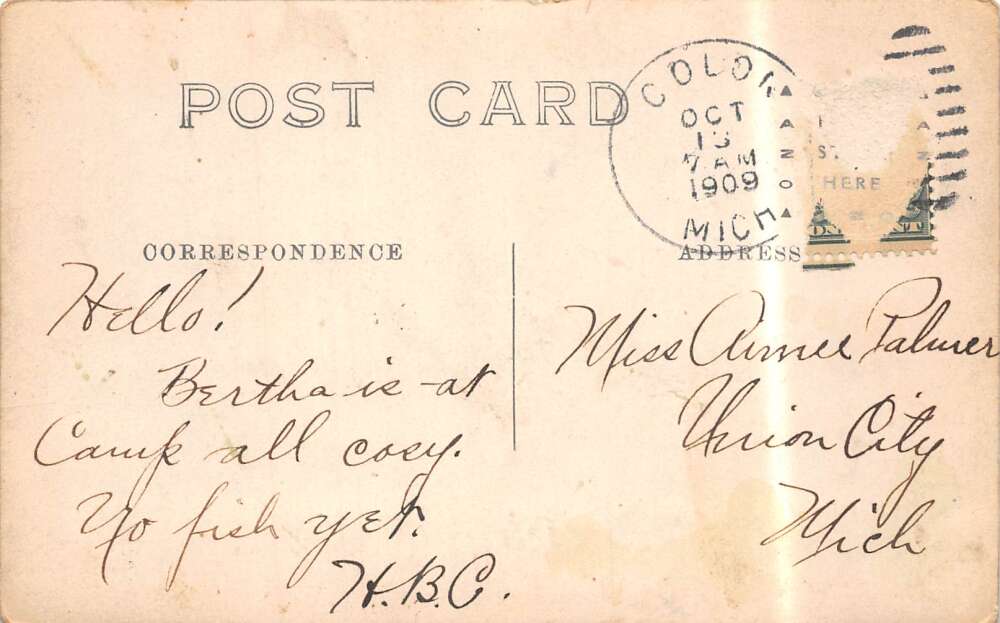 POST CARD
COLON
OCT
13
7 AM
1909
MICH
HERE
CORRESPONDENCE
ADDRESS
Hello!
Bertha is at
Camp all cosy.
No fish yet.
H.B.C.
Miss Aimee Palmer
Union City
Mich